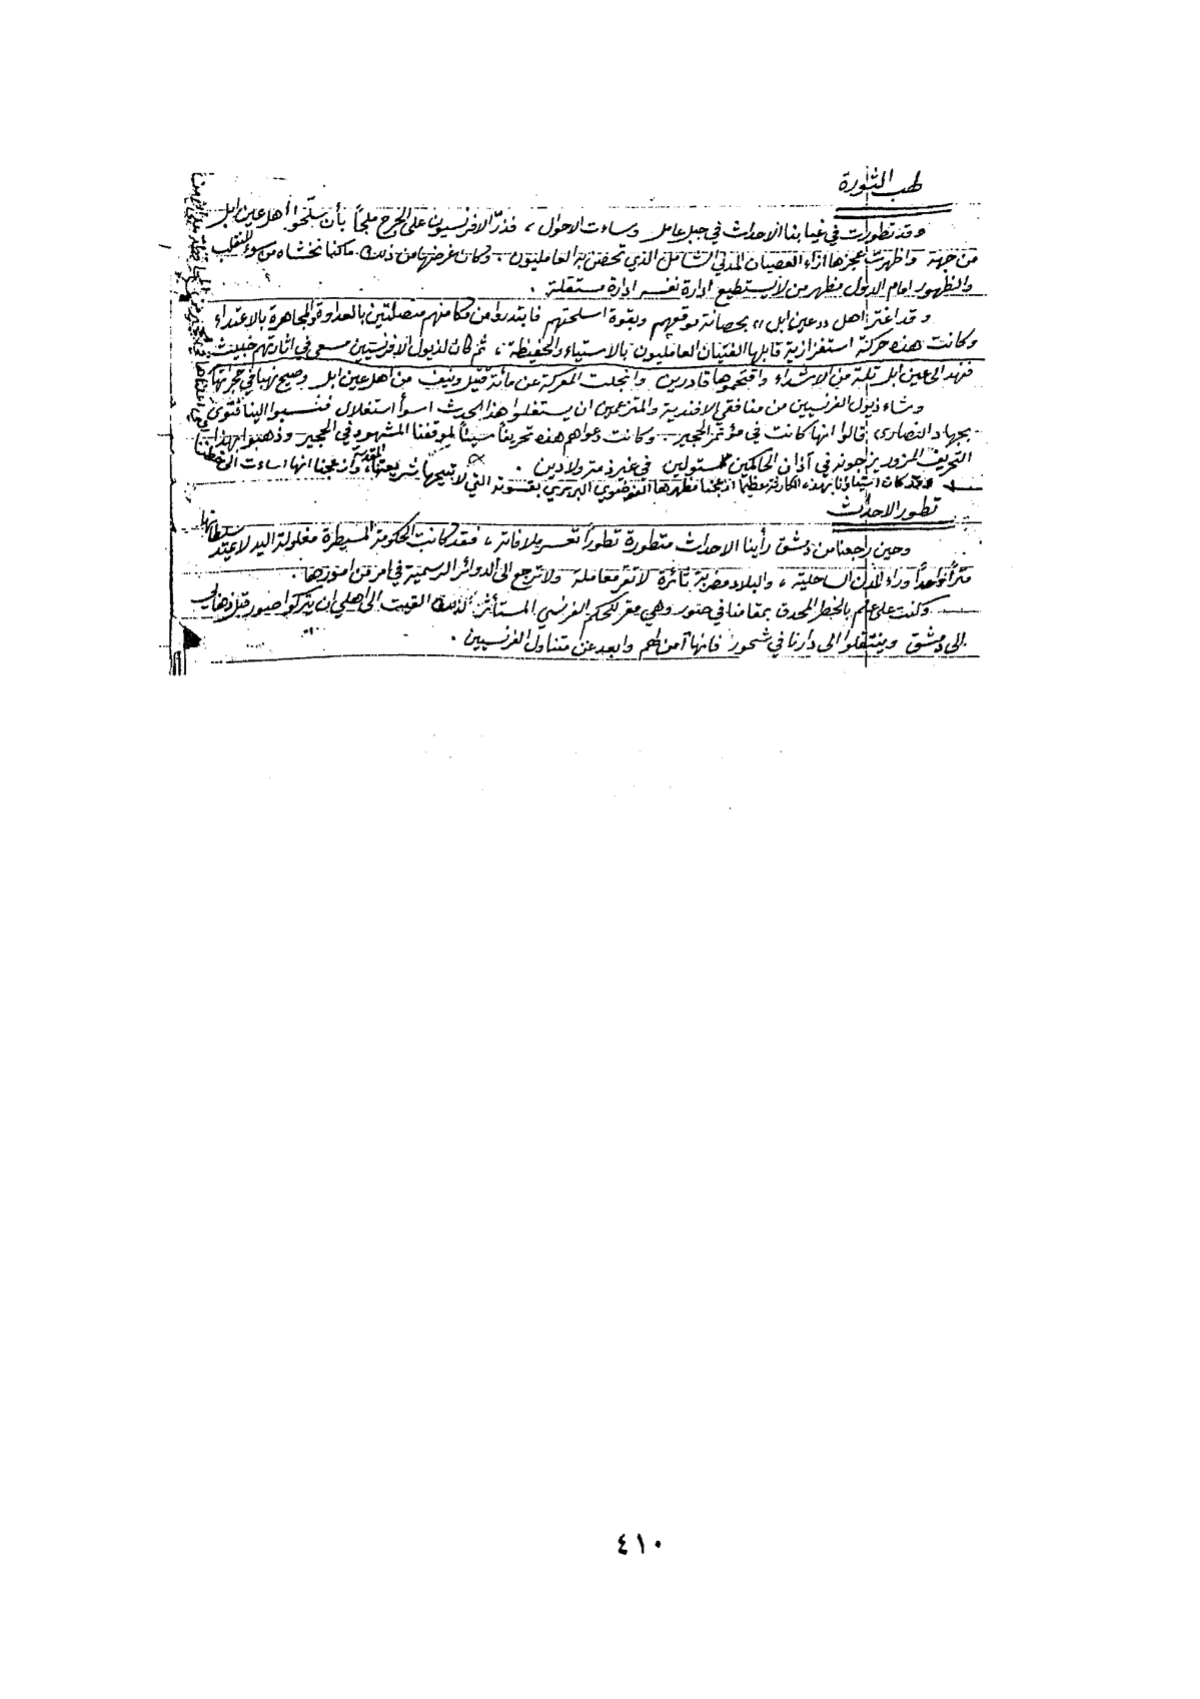 لهب الثورة
وقد تطورت في غيابنا الاحداث في جبل عامل وساءت الاحوال ، فذرّ الافرنسيون على الجرح ملحاً بأن سلّحوا أهل عين ابل
من جهة واظهرت عجزها ازاء العصيان المدني الشامل الذي تحصن به العامليون . وكان غرضها من ذلك ما كنا نخشاه من سوء المنقلب
والظهور امام الدول مظهر من لا يستطيع ادارة نفسه ادارة مستقلة .
وقد اغتر اهل «عين ابل» بحصانة موقعهم وبقوة اسلحتهم فابتدروا من مكامنهم متصلتين بالعداوة والمجاهرة بالاعتداء
وكانت هذه حركة استفزازية قابلها الفتيان العامليون بالاستياء والحفيظة ، ثم كان لذيول الافرنسيين سعي في اثارتهم خبيث
فنهد الى عين ابل ثلة من الاشداء واقتحموها قادرين وانجلت المعركة عن مائة قتيل ونيف من اهل عين ابل وصيح نهبا في حجراتها
وشاء ذيول الفرنسيين من منافقي الافندية والمتزعمين ان يستغلوا هذا الحدث اسوأ استغلال فنسبوا الينا فتوى
بجهاد النصارى قالوا انها كانت في مؤتمر الحجير . وكانت دعواهم هذه تحريفاً سيئاً لموقفنا المشهود في الحجير وذهبوا بهذا
التحريف المزور يزجونه في آذان الحاكمين كمسئولين في غير ذمة ولا دين .
وقد كان استياؤنا بهذه الكارثة عظيما ازعجنا مظهرها الفوضوي البربري بقسوته التي لا تبيحها شريعتنا المقدسة وازعجنا انها اساءت الى خطتنا
تطور الاحداث
وحين راجعنا من دمشق رأينا الاحداث متطورة تطوراً تعسر ملافاته ، فقد كانت الحكومة المسيطرة مغلولة اليد لا يمتد سلطانها
متراً واحداً وراء المدن الساحلية ، والبلاد مضربة ثائرة لا تقر معاملة ولا ترجع الى الدوائر الرسمية في امر من امورها .
وكنت على علم بالخطر المحدق بمقامنا في صور وهي مقر للحكم الفرنسي المستأثر لذلك القيت الى اهلي ان يتركوا صور قبل ذهابي
الى دمشق وينتقلوا الى دارنا في شحور فانها آمن لهم وابعد عن متناول الفرنسيين .
٤١٠